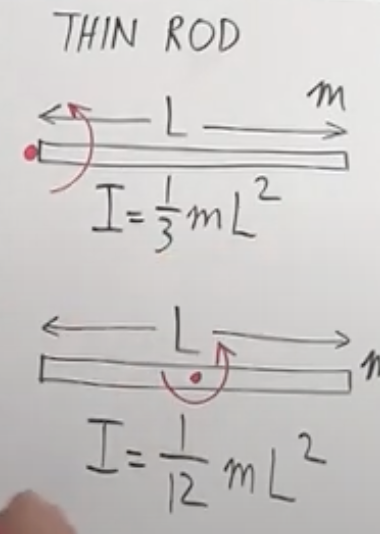 THIN ROD
L m
I = 1/3 mL²
L m
I = 1/12 mL²